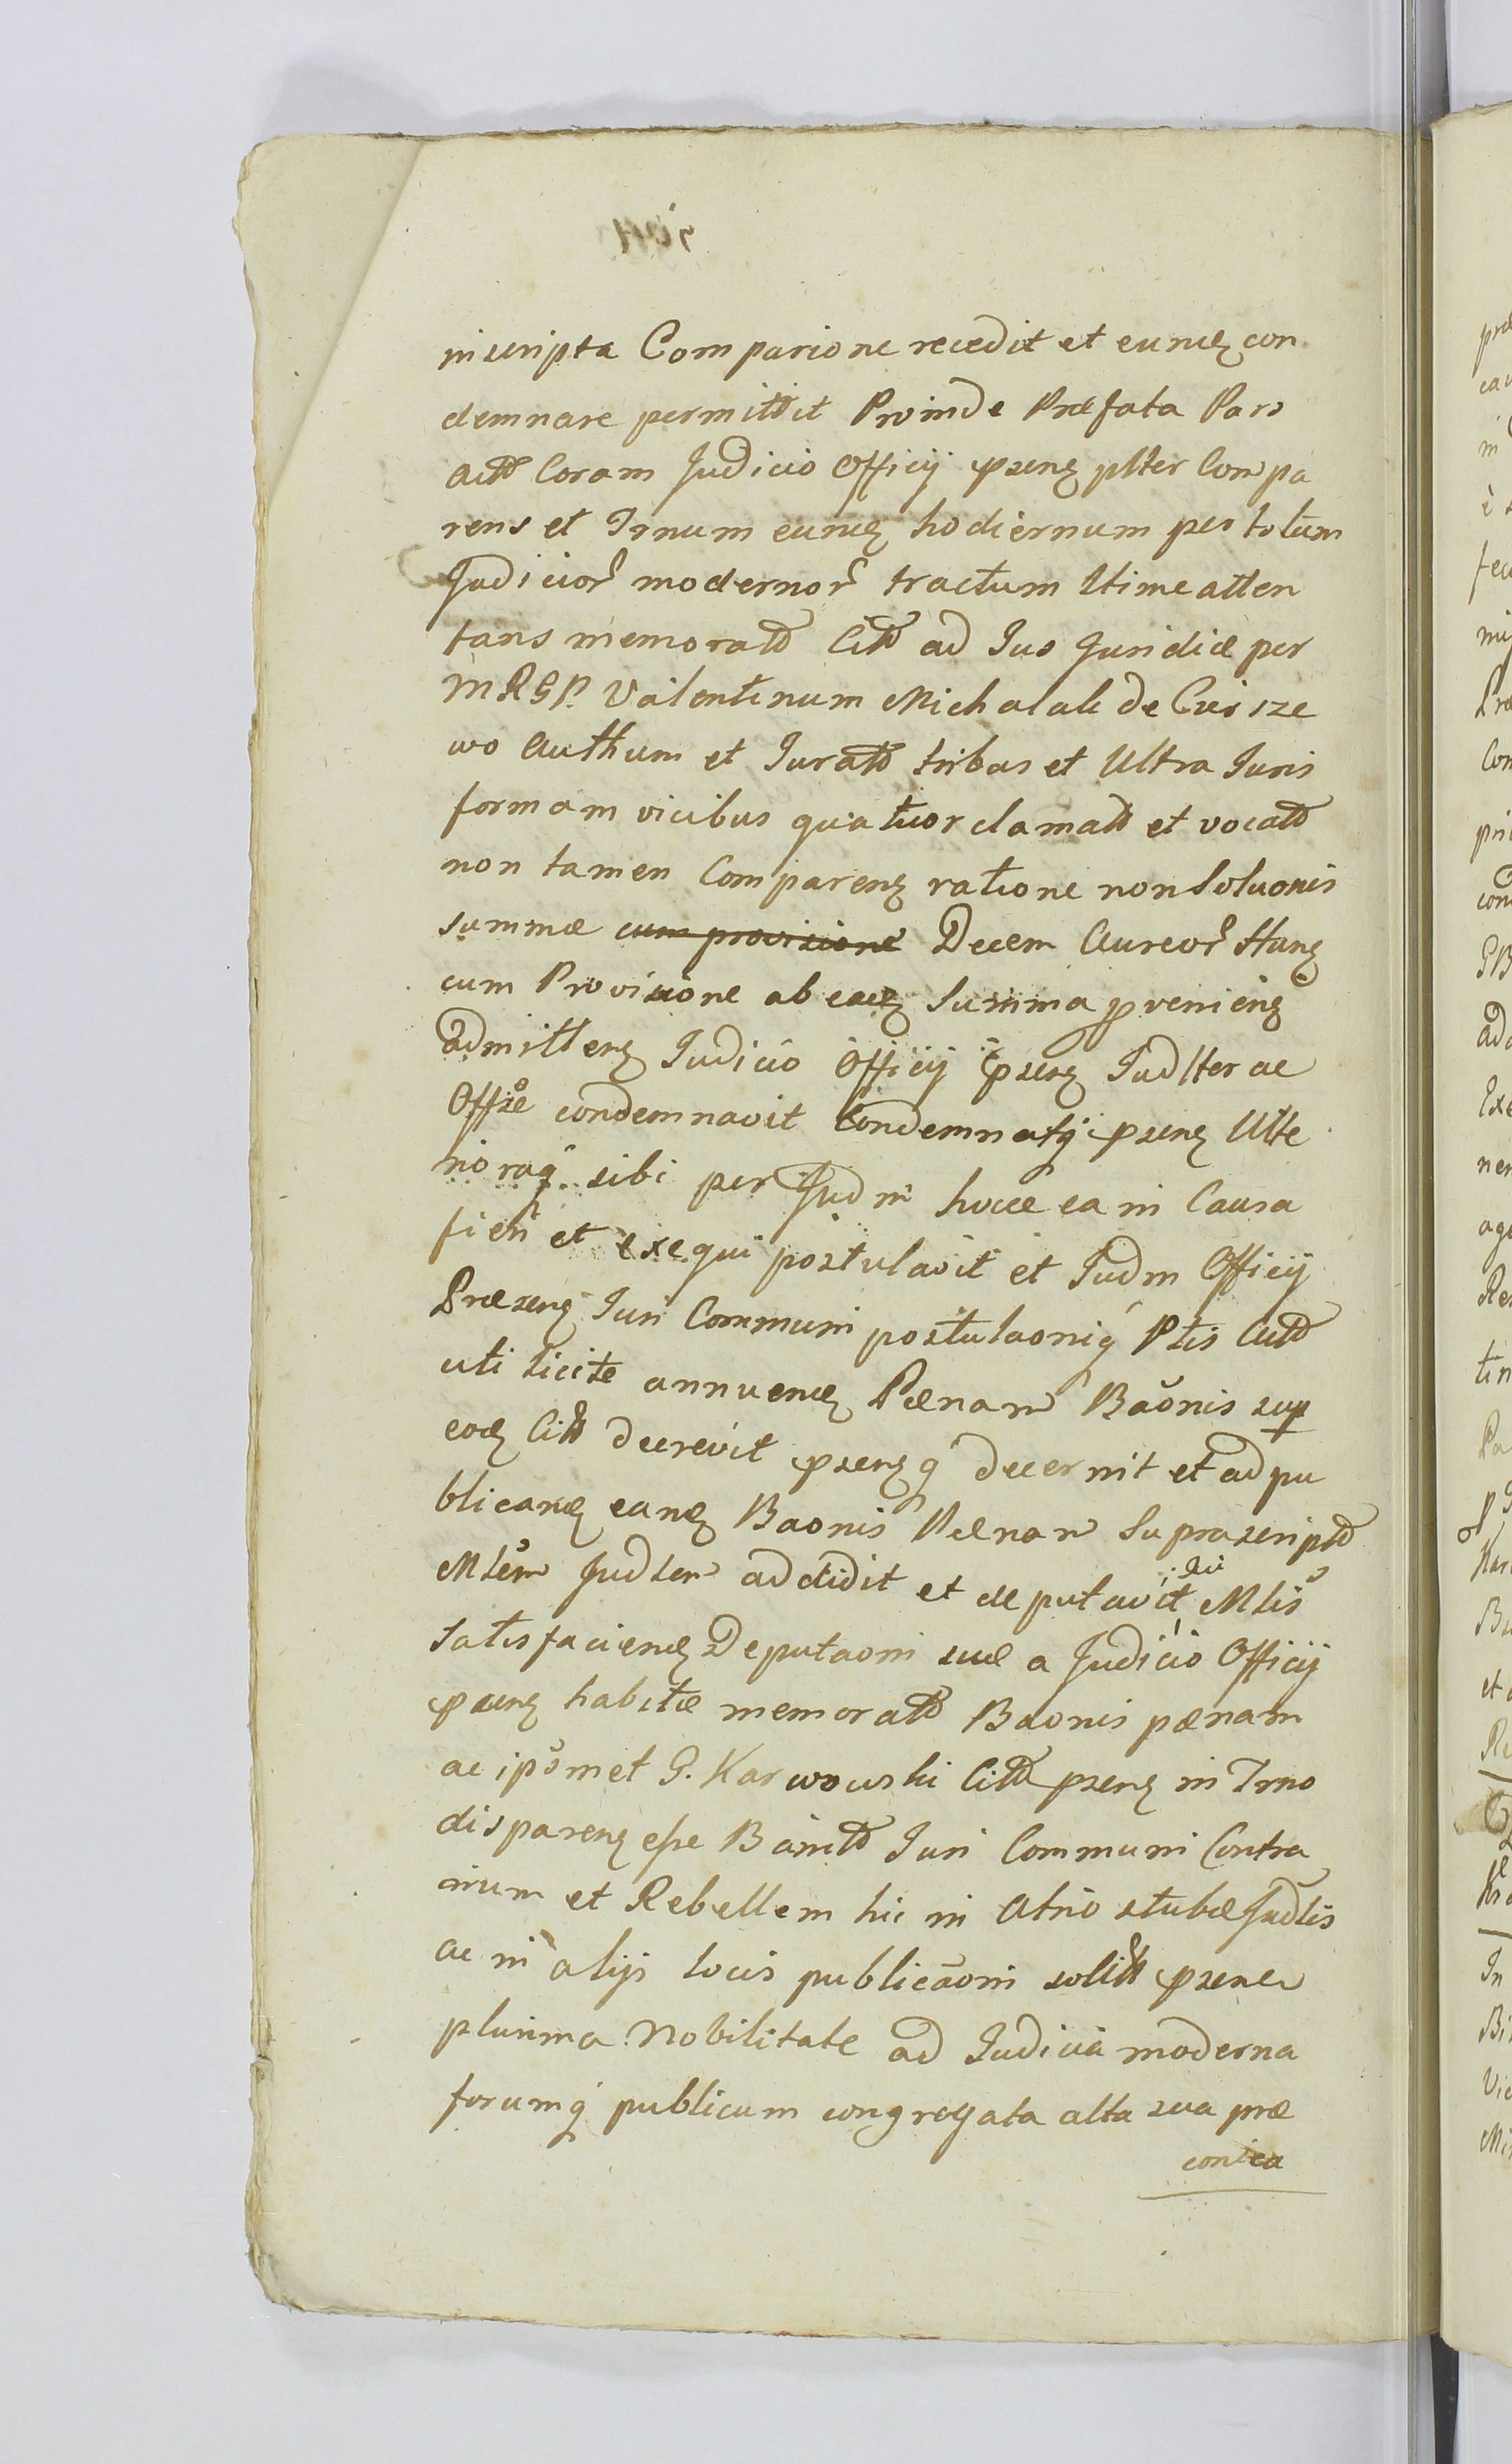 inscripta Comparione recedit et eundẽ con
demnare permittit Proinde Præfata Pars
act͠ Coram Judicio Officij pseñ plter Compa
rens et Trnum eundẽ hodiernum per totum
Judicior̃ modernor̃ tractum ltime atten
tans memorat͠ Cit͠ ad Jus Juridice per
MRGP. Valentinum Michalak de
wo Authum et Jurat͠ tribus et Ultra Juris
formam vicibus quatuor clamat͠ et vocat͠
non tamen Comparen͠ ratione non Soluonis
summæ cum provisione Decem Aureor̃ Hung͠
cum Provisione ab eadẽ Summa pvenien͠
admitten͠ Judicio Officij psen͠ Judlter ac
Offse condemnavit Condemnatq́ psen͠ Ulte
rioraq́ sibi per Judm hocce ea in Causa
fieri et exequi postulavit et Judm Officij
Præsen͠ Juri Communi postulaoniq́ Ptis Act͠
uti licite annuendẽ Pænam Bãonis sup
eodẽ Cit͠ decrevit psen͠q́ decernit et ad pu
blicandẽ eandẽ Baonis Pænam Suprascript͠
Mlem Judlem addidit et deputavit, qui Mlis
satisfaciendẽ Deputaoni suæ a Judicio Officij
psen͠ habitæ memorat͠ Baonis pænam
ac ipsmet G. Karwowski Cit͠ psen͠ in Trno
disparen͠ esse Bannit͠ Juri Communi Contra
rium et Rebellem hic in Atrio stubæ Judlis
ac in alijs locis publicãoni solit͠ psente
plurima Nobilitate ad Judicia moderna
forumq́ publicum congregata alta sua præ
conica